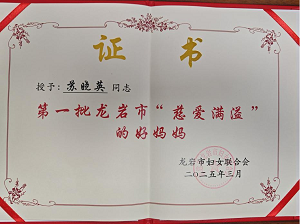 证书
授予：苏晓英 同志
第一批龙岩市“慈爱满溢”
的好妈妈
龙岩市妇女联合会
二〇二五年三月